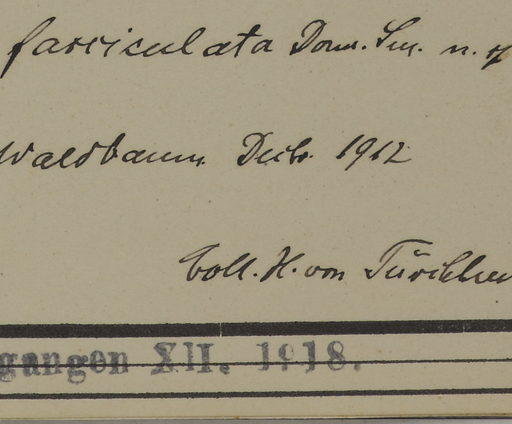 fasciculata Donn. Sm. n. sp
Waldbaum. Decbr. 1912
Coll. H. von Türckhei
gangen XII. 1918.